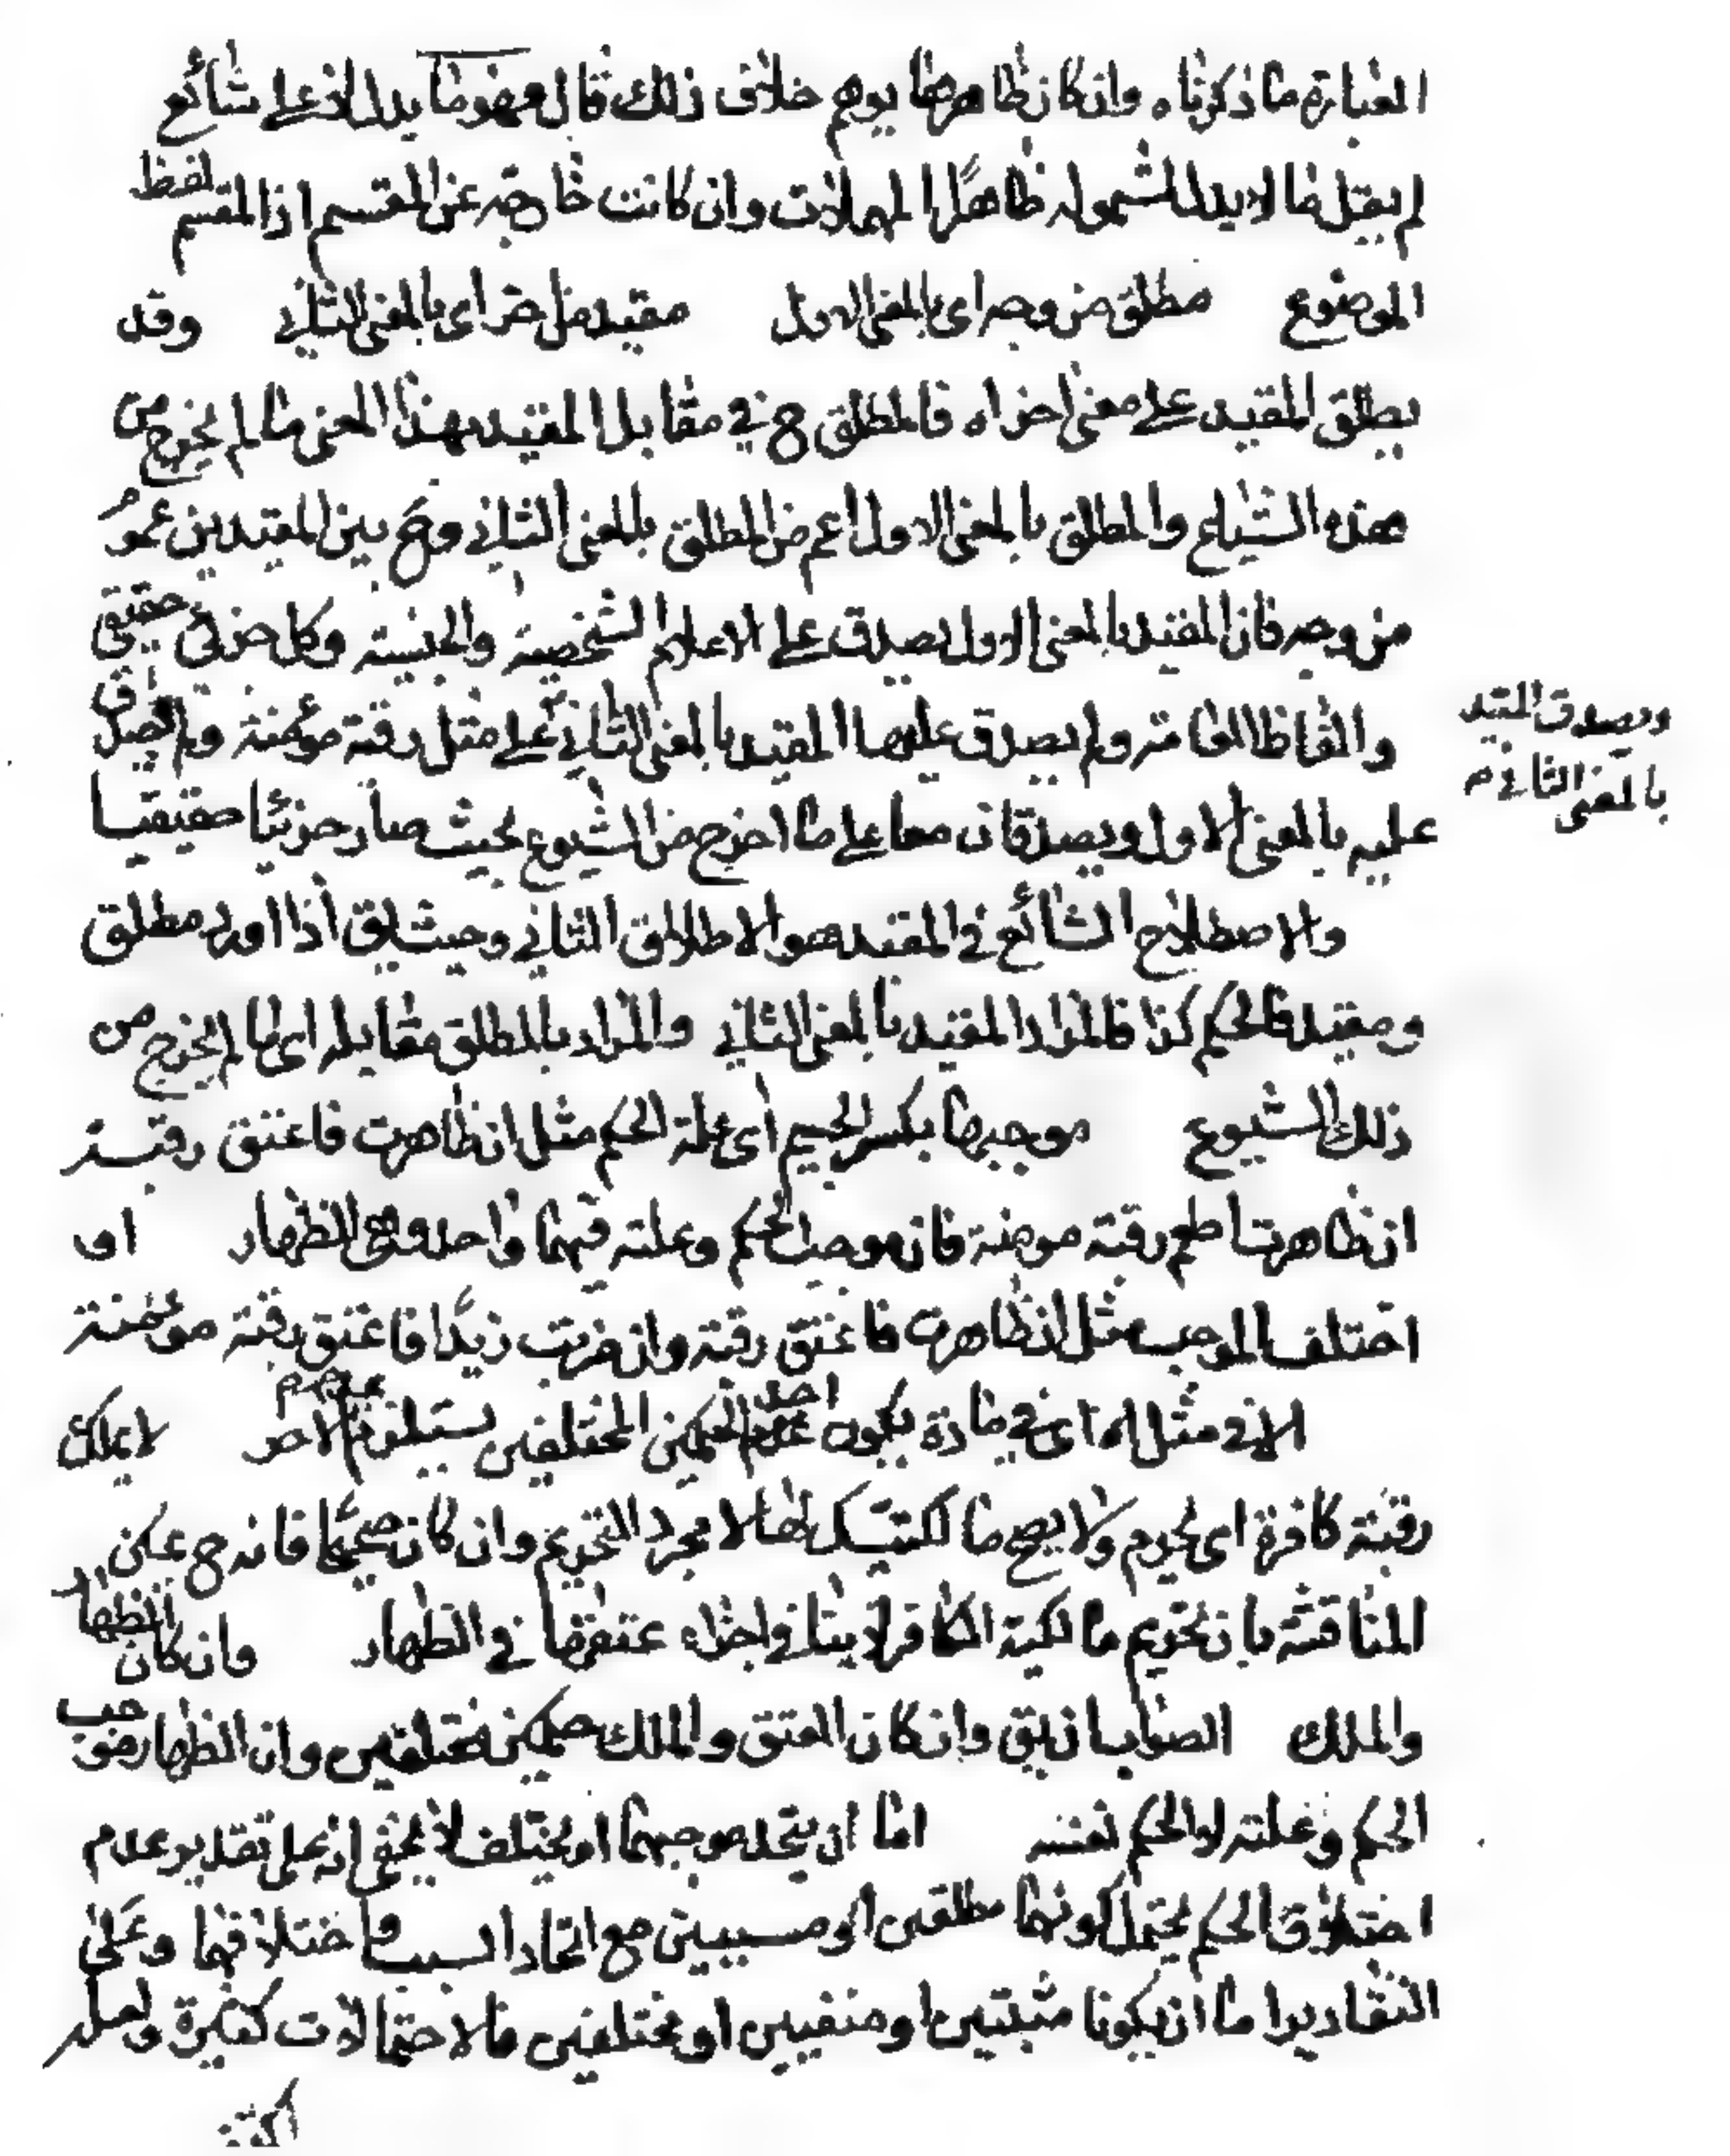 العبارة ما ذكرناه وان كان ظاهرها يوهم خلاف ذلك قال فهو ما يدل لا على شائع
لم يقل ما لا يدل لشموله ظاهرًا المهملات وان كانت خارجة عن المقسم اذ المقسم لفظ
الموضوع مطلق من وجه اى بالمعنى الاول مقيد من اخر اى بالمعنى الثاني وقد
يطلق المقيد على معنى اخر اه فالمطلق ح في مقابل المقيد بهذا المعنى ما لم يخرج من
هذه الشياع والمطلق بالمعنى الاول اعم من المطلق بالمعنى الثاني وح بين المقيدين عموم
من وجه فان المقيد بالمعنى الاول يصدق على الاعلام الشخصية والجنسية وكل جزئي حقيقي
والفاظ العامة ولم يصدق عليها المقيد بالمعنى الثاني على مثل رقبة مؤمنة ولم يصدق
ويصدق المقيد
بالمعنى الثاني م
عليه بالمعنى الاول ويصدقان معا على ما اخرج من الشيوع بحيث صار جزئيا حقيقيا
والاصطلاح الشائع في المقيد هو الاطلاق الثاني وحيث يق اذا ورد مطلق
ومقيد فالحكم كذا فالمراد المقيد بالمعنى الثاني والمراد بالمطلق مقابله اى ما لم يخرج من
ذلك الشيوع موجبها بكسر الجيم اى علة الحكم مثل ان ظاهرت فاعتق رقبة
ان ظاهرت اطعم رقبة مومنة فان موجب الحكم وعلته فيهما واحد وهى الظهار او
اختلف الموجب مثل ان ظاهرت فاعتق رقبة وان ضربت زيدًا فاعتق رقبة مؤمنة
الا في مثل اه اى في مادة يكون احد الحكمين المختلفين يستلزم الاخر لا يملك
رقبة كافرة اى يحرم ولا يصح مالكيتك لها لا مجرد التحريم وان كان صحيحًا فانه ح يمكن
المناقشة بان تحريم مالكية الكافر لا ينافي اجزاء عتقها في الظهار وان كان الظهار
والملك الصواب ان يق وان كان العتق والملك حكمين مختلفين وان الظهار موجب
الحكم وعلته لا الحكم نفسه اما ان يتحد موجبهما او يختلف لا يخفى انه على تقدير عدم
اختلاف الحكم يحتمل كونهما مطلقين او مسببين مع اتحاد السبب واختلافهما وعلى
التقادير اما ان يكونا مثبتين او منفيين او مختلفين فالاحتمالات كثيرة ولعله